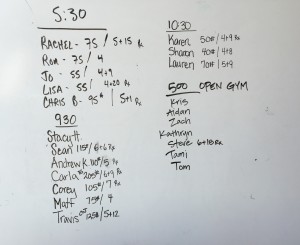 5:30
RACHEL - 75 / 5+15 Rx
Ron - 75 / 4
Jo - 55 / 4+9
LISA - 55 / 4+20 Rx
CHRIS B - 95# / 5+1 Rx
930
Stacy H
Sean 115# / 6+6 Rx
Andrew K 110# / 5 Rx
Carla 200# / 6+9 Rx
Corey 105# / 7 Rx
Matt 75# / 4
Travis 125# / 5+12
10:30
Karen 50# / 4+9 Rx
Sharon 40# / 4+8
Lauren 70# / 5+9
500 OPEN GYM
Kris
Aidan
Zach
Kathryn
Steve 6+18 Rx
Tami
Tom